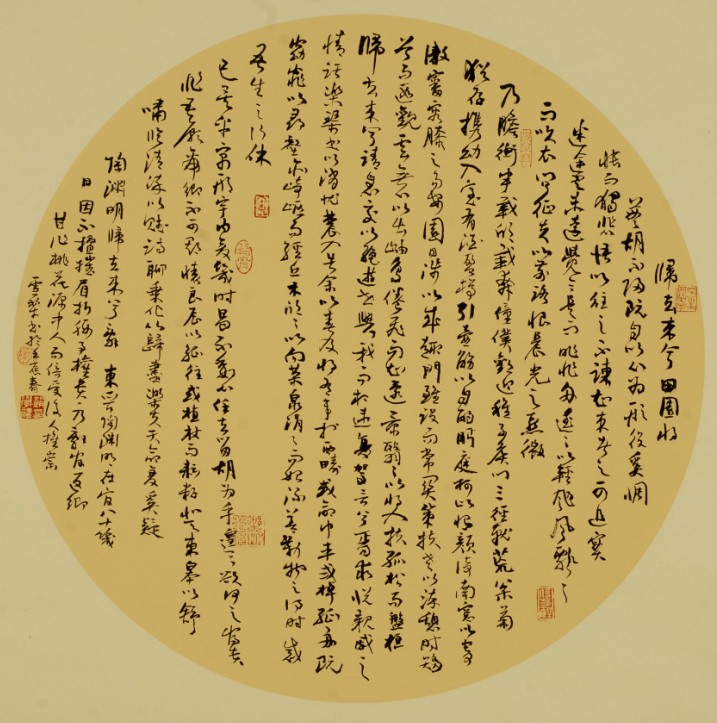 歸去來兮田園將
蕪胡不歸既自以心為形役奚惆
悵而獨悲悟以往之不諫知來者之可追實
迷途其未遠覺今是而昨非舟遙遙以輕颺風飄飄
而吹衣問征夫以前路恨晨光之熹微
乃瞻衡宇載欣載奔僮僕歡迎稚子候門三徑就荒松菊
猶存攜幼入室有酒盈樽引壺觴以自酌眄庭柯以怡顏倚南窗以寄
傲審容膝之易安園日涉以成趣門雖設而常關策扶老以流憩時矯
首而遐觀雲無心以出岫鳥倦飛而知還景翳翳以將入撫孤松而盤桓
歸去來兮請息交以絕遊世與我而相違復駕言兮焉求悅親戚之
情話樂琴書以消憂農人告余以春及將有事於西疇或命巾車或棹孤舟既
窈窕以尋壑亦崎嶇而經丘木欣欣以向榮泉涓涓而始流善萬物之得時感
吾生之行休
已矣乎寓形宇內復幾時曷不委心任去留胡為乎遑遑欲何之富貴
非吾願帝鄉不可期懷良辰以孤往或植杖而耘耔登東皋以舒
嘯臨清流以賦詩聊乘化以歸盡樂夫天命復奚疑
陶淵明歸去來兮辭 東晉陶淵明在官八十幾
日因不擅摧眉折腰事權貴乃辭官返鄉
甘心桃花源中人而倍受後人推崇
書於